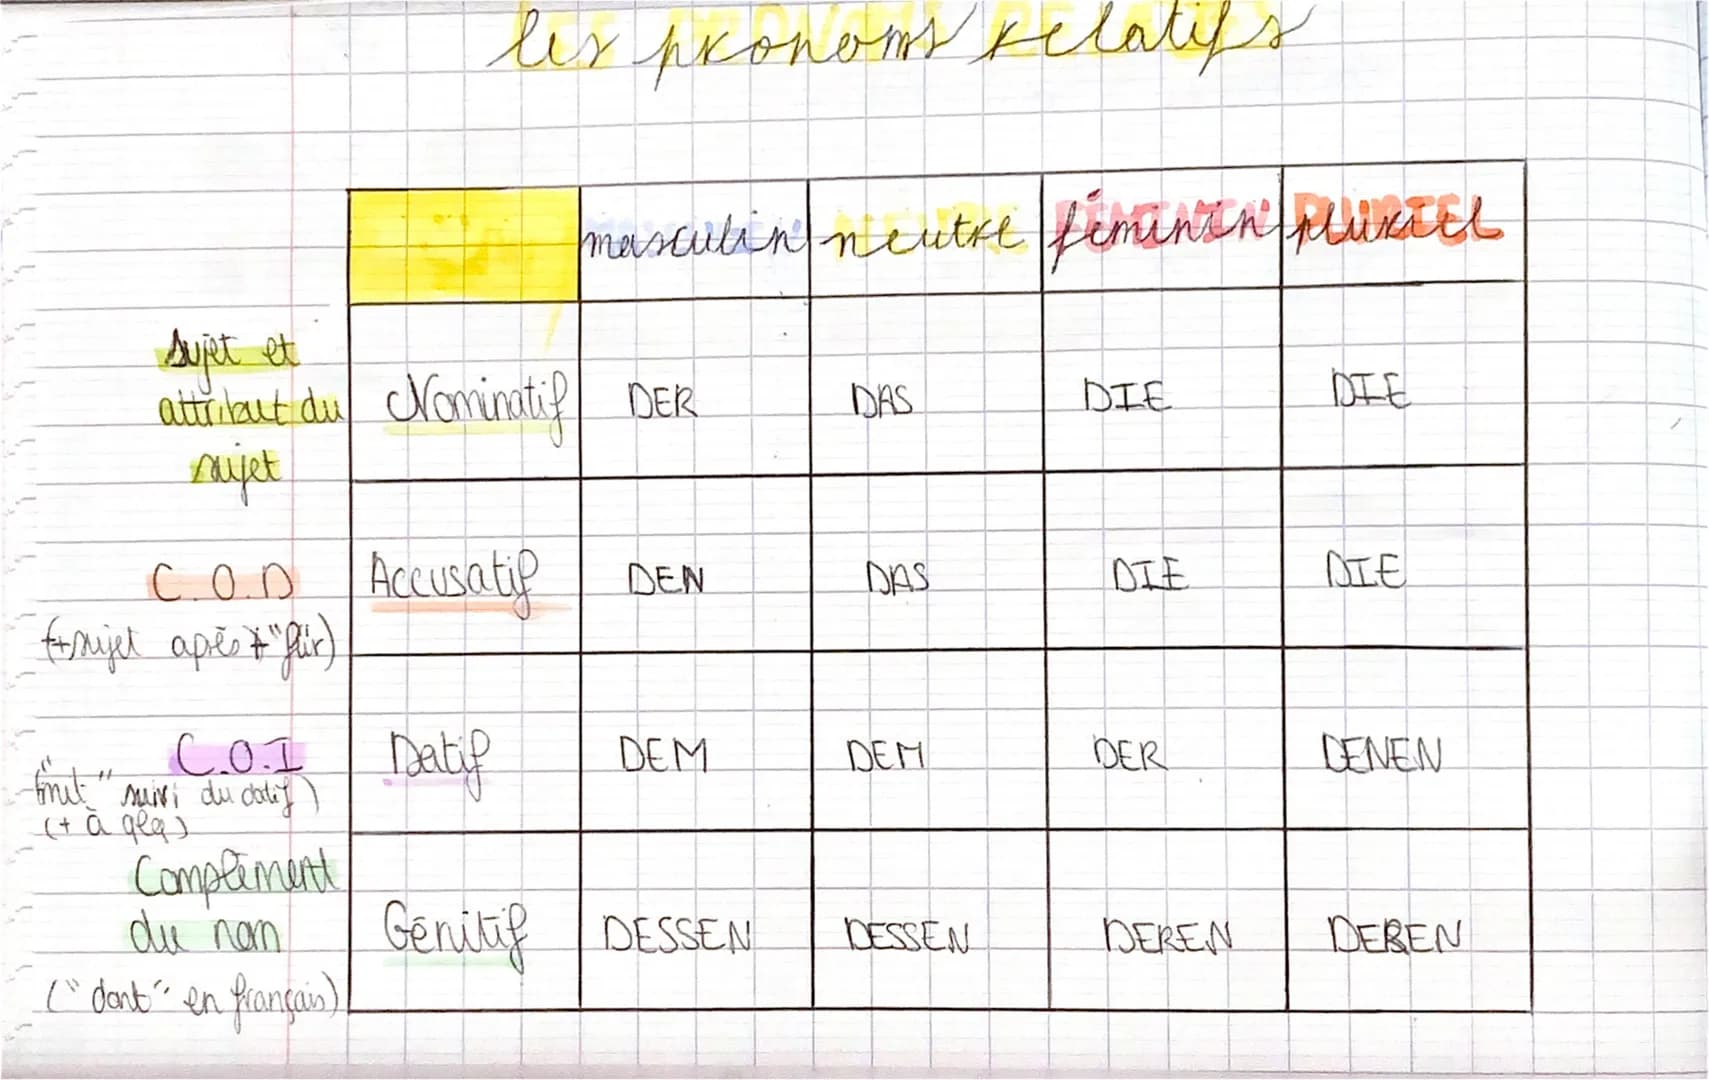 les pronoms relatifs
masculin neutre féminin pluriel
Sujet et
attribut du
sujet
Nominatif DER DAS DIE DIE
C.O.D
(+sujet après + "für)
Accusatif DEN DAS DIE DIE
C.O.I
suivi du datif)
(+ à qlq)
Datif DEM DEM DER DENEN
Complément
du nom
("dont" en français)
Génitif DESSEN DESSEN DEREN DEREN